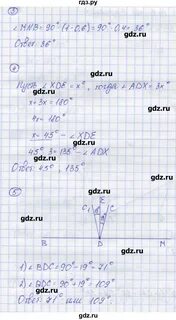 гдз.ру
③
∠MHB = 90° · (1-0,6) = 90° · 0,4 = 36°
Ответ: 36°
④
Пусть ∠XDE = x°, тогда ∠ADX = 3x°
x + 3x = 180°
4x = 180°
x = 45° - ∠XDE
45° · 3 = 135° - ∠ADX
Ответ: 45°, 135°
⑤
C₁ E C
B D M
1) ∠BDC = 90° - 19° = 71°
2) = 90° + 19° = 109°
Ответ: 71° или 109°